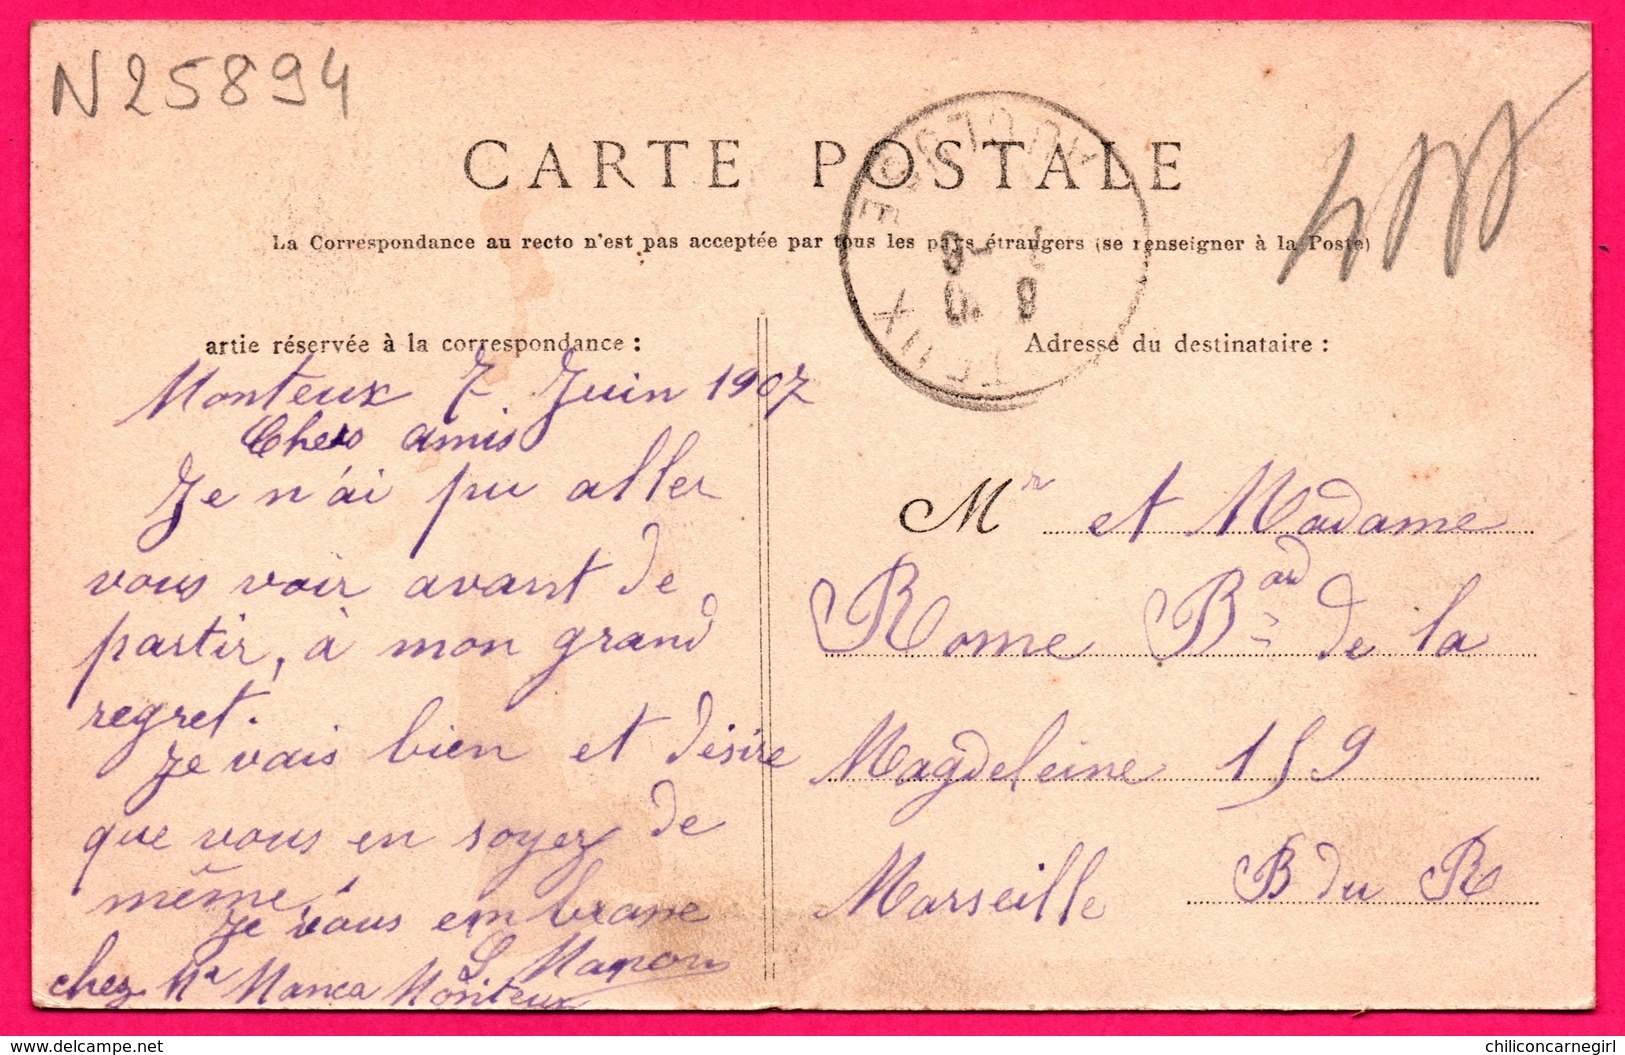 N25894
CARTE POSTALE
La Correspondance au recto n'est pas acceptée par tous les pays étrangers (se renseigner à la Poste)
artie réservée à la correspondance :
Monteux 7 Juin 1907
Chers amis
Je n'ai pu aller
vous voir avant de
partir, à mon grand
regret.
Je vais bien et désire
que vous en soyez de
même.
Je vous embrasse
chez Mr Manca Monteux
Adresse du destinataire :
Mr et Madame
Rome Bard de la
Magdeleine 159
Marseille B du R
delcampe.net
chiliconcarnegirl